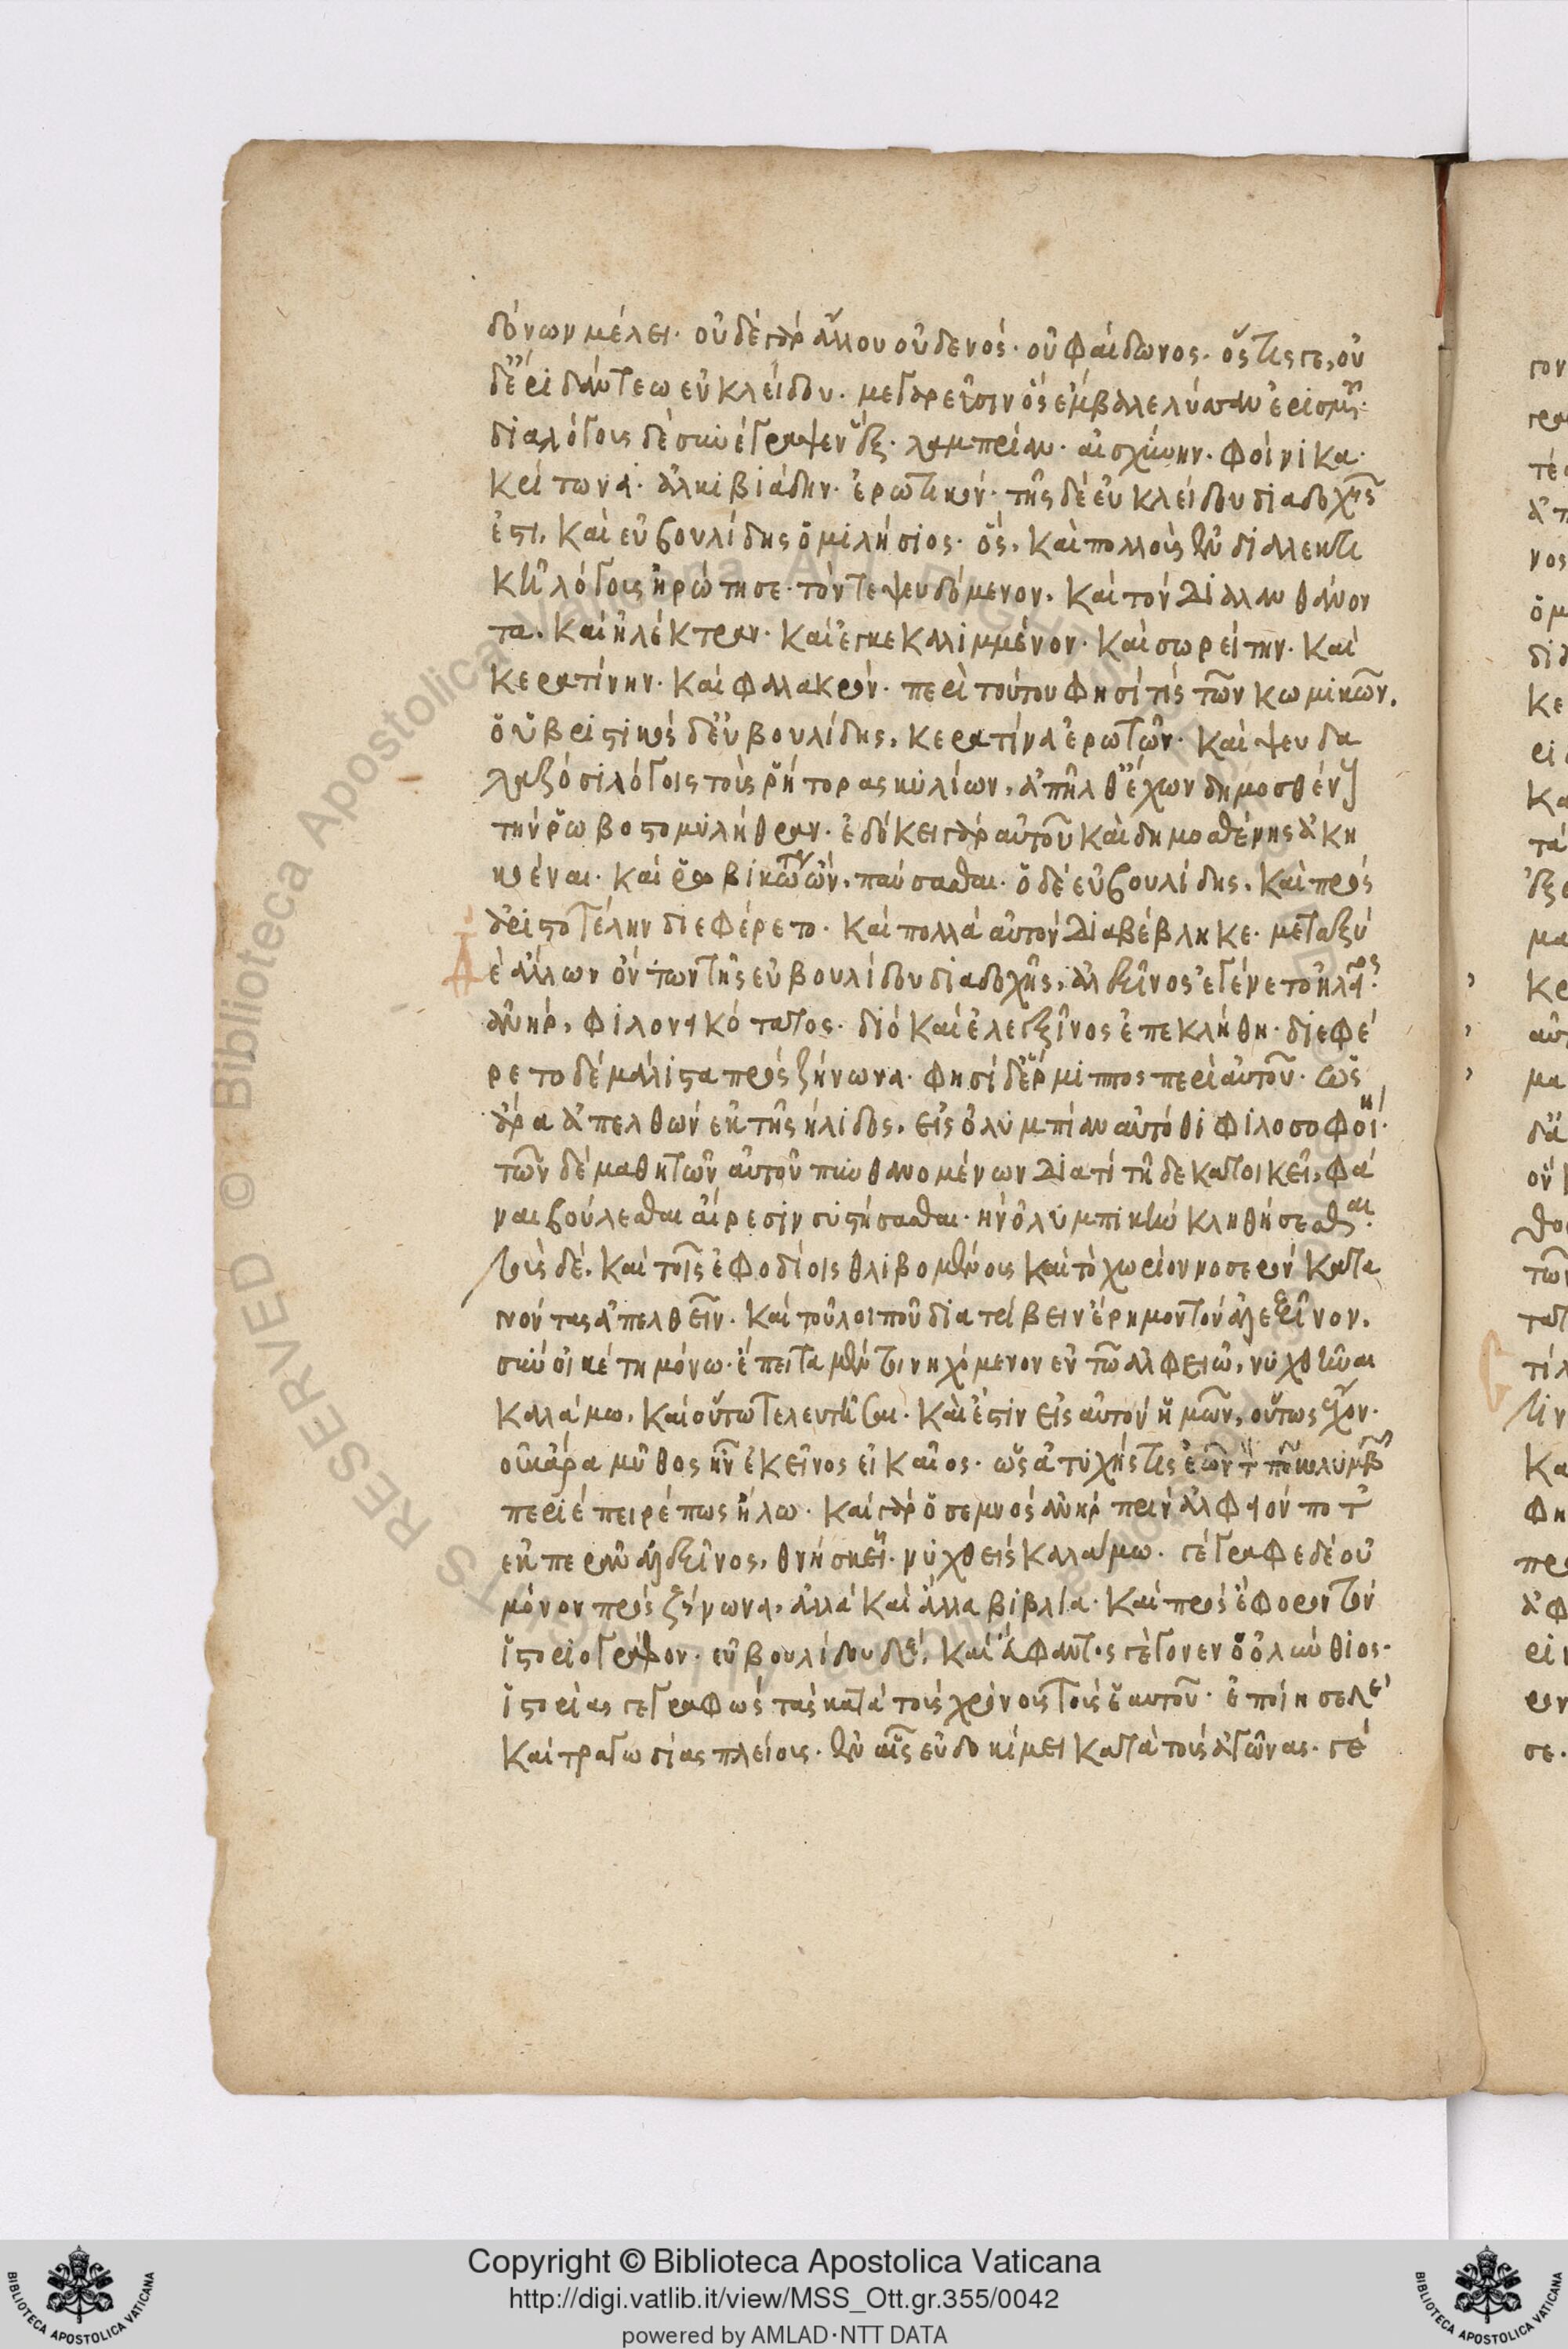 δόνων μέλει· οὐδὲ γὰρ ἄλλου οὐδενός· οὐ φαίδωνος· ὅς τις γε, οὐ
δ' ἐριδάντεω εὐκλείδου· μεγαρεῦσιν ὃς ἔμβαλε λύσσαν ἐρισμοῦ·
διαλόγους δὲ συνέγραψεν ἕξ· λαμπρίαν· αἰσχίνην· φοίνικα·
κρίτωνα· ἀλκιβιάδην· ἐρωτικόν· τῆς δὲ εὐκλείδου διαδοχῆς
ἐστι, καὶ εὐβουλίδης ὁ μιλήσιος· ὃς, καὶ πολλοὺς ἐν διαλεκτι
κῆ λόγους ἠρώτησε· τόν τε ψευδόμενον, καὶ τὸν διαλανθάνον
τα, καὶ ἠλέκτραν· καὶ ἐγκεκαλιμμένον· καὶ σωρείτην· καὶ
κερατίνην· καὶ φαλακρόν· περὶ τούτου φησί τις τῶν κωμικῶν,
ὁ ὑβριστικὸς δ' εὐβουλίδης, κερατίνα ἐρωτῶν· καὶ ψευδα
λαζόσι λόγοις τοὺς ῥήτορας κυλίων, ἀπῆλθ' ἔχων δημοσθέν
τὴν ῥωβοστομυλήθραν· ἐδόκει γὰρ αὐτοῦ καὶ δημοσθένης ἀκη
κοέναι· καὶ ῥωβικώτων ὢν, παύσασθαι· ὁ δὲ εὐβουλίδης, καὶ πρὸς
ἀριστοτέλην διεφέρετο· καὶ πολλὰ αὐτὸν διαβέβληκε· μεταξὺ
ἐ ἄλλων ὄντων τῆς εὐβουλίδου διαδοχῆς, ἀλεξῖνος ἐγένετο ἠλεῖος·
ἀνὴρ, φιλονικότατος· διὸ καὶ ἐλεγξῖνος ἐπεκλήθη· διεφέ
ρετο δὲ μάλιστα πρὸς ζήνωνα· φησὶ δ' ἕρμιππος περὶ αὐτοῦ· ὡς
ἄρα ἀπελθὼν ἐκ τῆς ἤλιδος, εἰς ὀλυμπίαν αὐτόθι φιλοσοφοίη·
τῶν δὲ μαθητῶν αὐτοῦ πυνθανομένων διατί τῆδε κατοικεῖ, φά
ναι βούλεσθαι αἵρεσιν συστήσασθαι· ἣν ὀλυμπικὴν κληθήσεσθαι·
τοὺς δὲ, καὶ τοῖς ἐφοδίοις θλιβομένους καὶ τὸ χωρίον νοσερὸν κατα
νοόντας ἀπελθεῖν· καὶ τοῦ λοιποῦ διατρίβειν ἔρημον τὸν ἀλεξῖνον,
σὺν οἰκέτη μόνω· ἔπειτα μέντοι νηχόμενον ἐν τῶ ἀλφειῶ, νυχθῆναι
καλάμω, καὶ οὕτω τελευτῆσαι· καὶ ἔστιν εἰς αὐτὸν ἡμῶν, οὕτως ἔχον·
οὐκ ἄρα μῦθος ἦν ἐκεῖνος εἰκαῖος· ὡς ἀτυχής τις ἐὼν τὸν πόδα κολυμβῶν
περιέπειρέ πως ἥλω· καὶ γὰρ ὁ σεμνὸς ἀνὴρ πρὶν ἀλφιόν ποτ'
ἐκπερᾶν ἀλεξῖνος, θνήσκει· νυχθεὶς καλάμω· γέγραφε δὲ οὐ
μόνον πρὸς ζήνωνα, ἀλλὰ καὶ ἄλλα βιβλία· καὶ πρὸς ἔφορον τὸν
ἱστοριογράφον· εὐβουλίδου δὲ, καὶ εὔφαντος γέγονεν ὁ ὀλύνθιος·
ἱστορίας γεγραφὼς τὰς κατὰ τοὺς χρόνους τοὺς ἑαυτοῦ· ἐποίησε δὲ
καὶ τραγωδίας πλείους· ἐν αἷς εὐδοκίμει κατὰ τοὺς ἀγῶνας· γέ
Copyright © Biblioteca Apostolica Vaticana
http://digi.vatlib.it/view/MSS_Ott.gr.355/0042
powered by AMLAD·NTT DATA